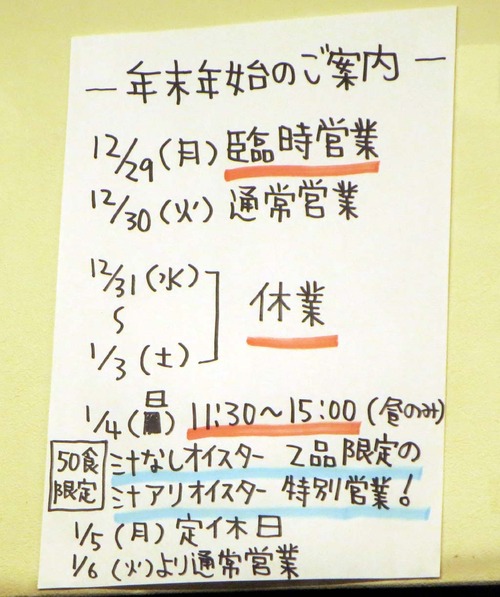 — 年末年始のご案内 —
12/29(月) 臨時営業
12/30(火) 通常営業
12/31(水)
〜
1/3(土)
休業
1/4(日) 11:30〜15:00(昼のみ)
50食限定
汁なしオイスター 2品限定の
汁アリオイスター 特別営業!
1/5(月)定休日
1/6(火)より通常営業